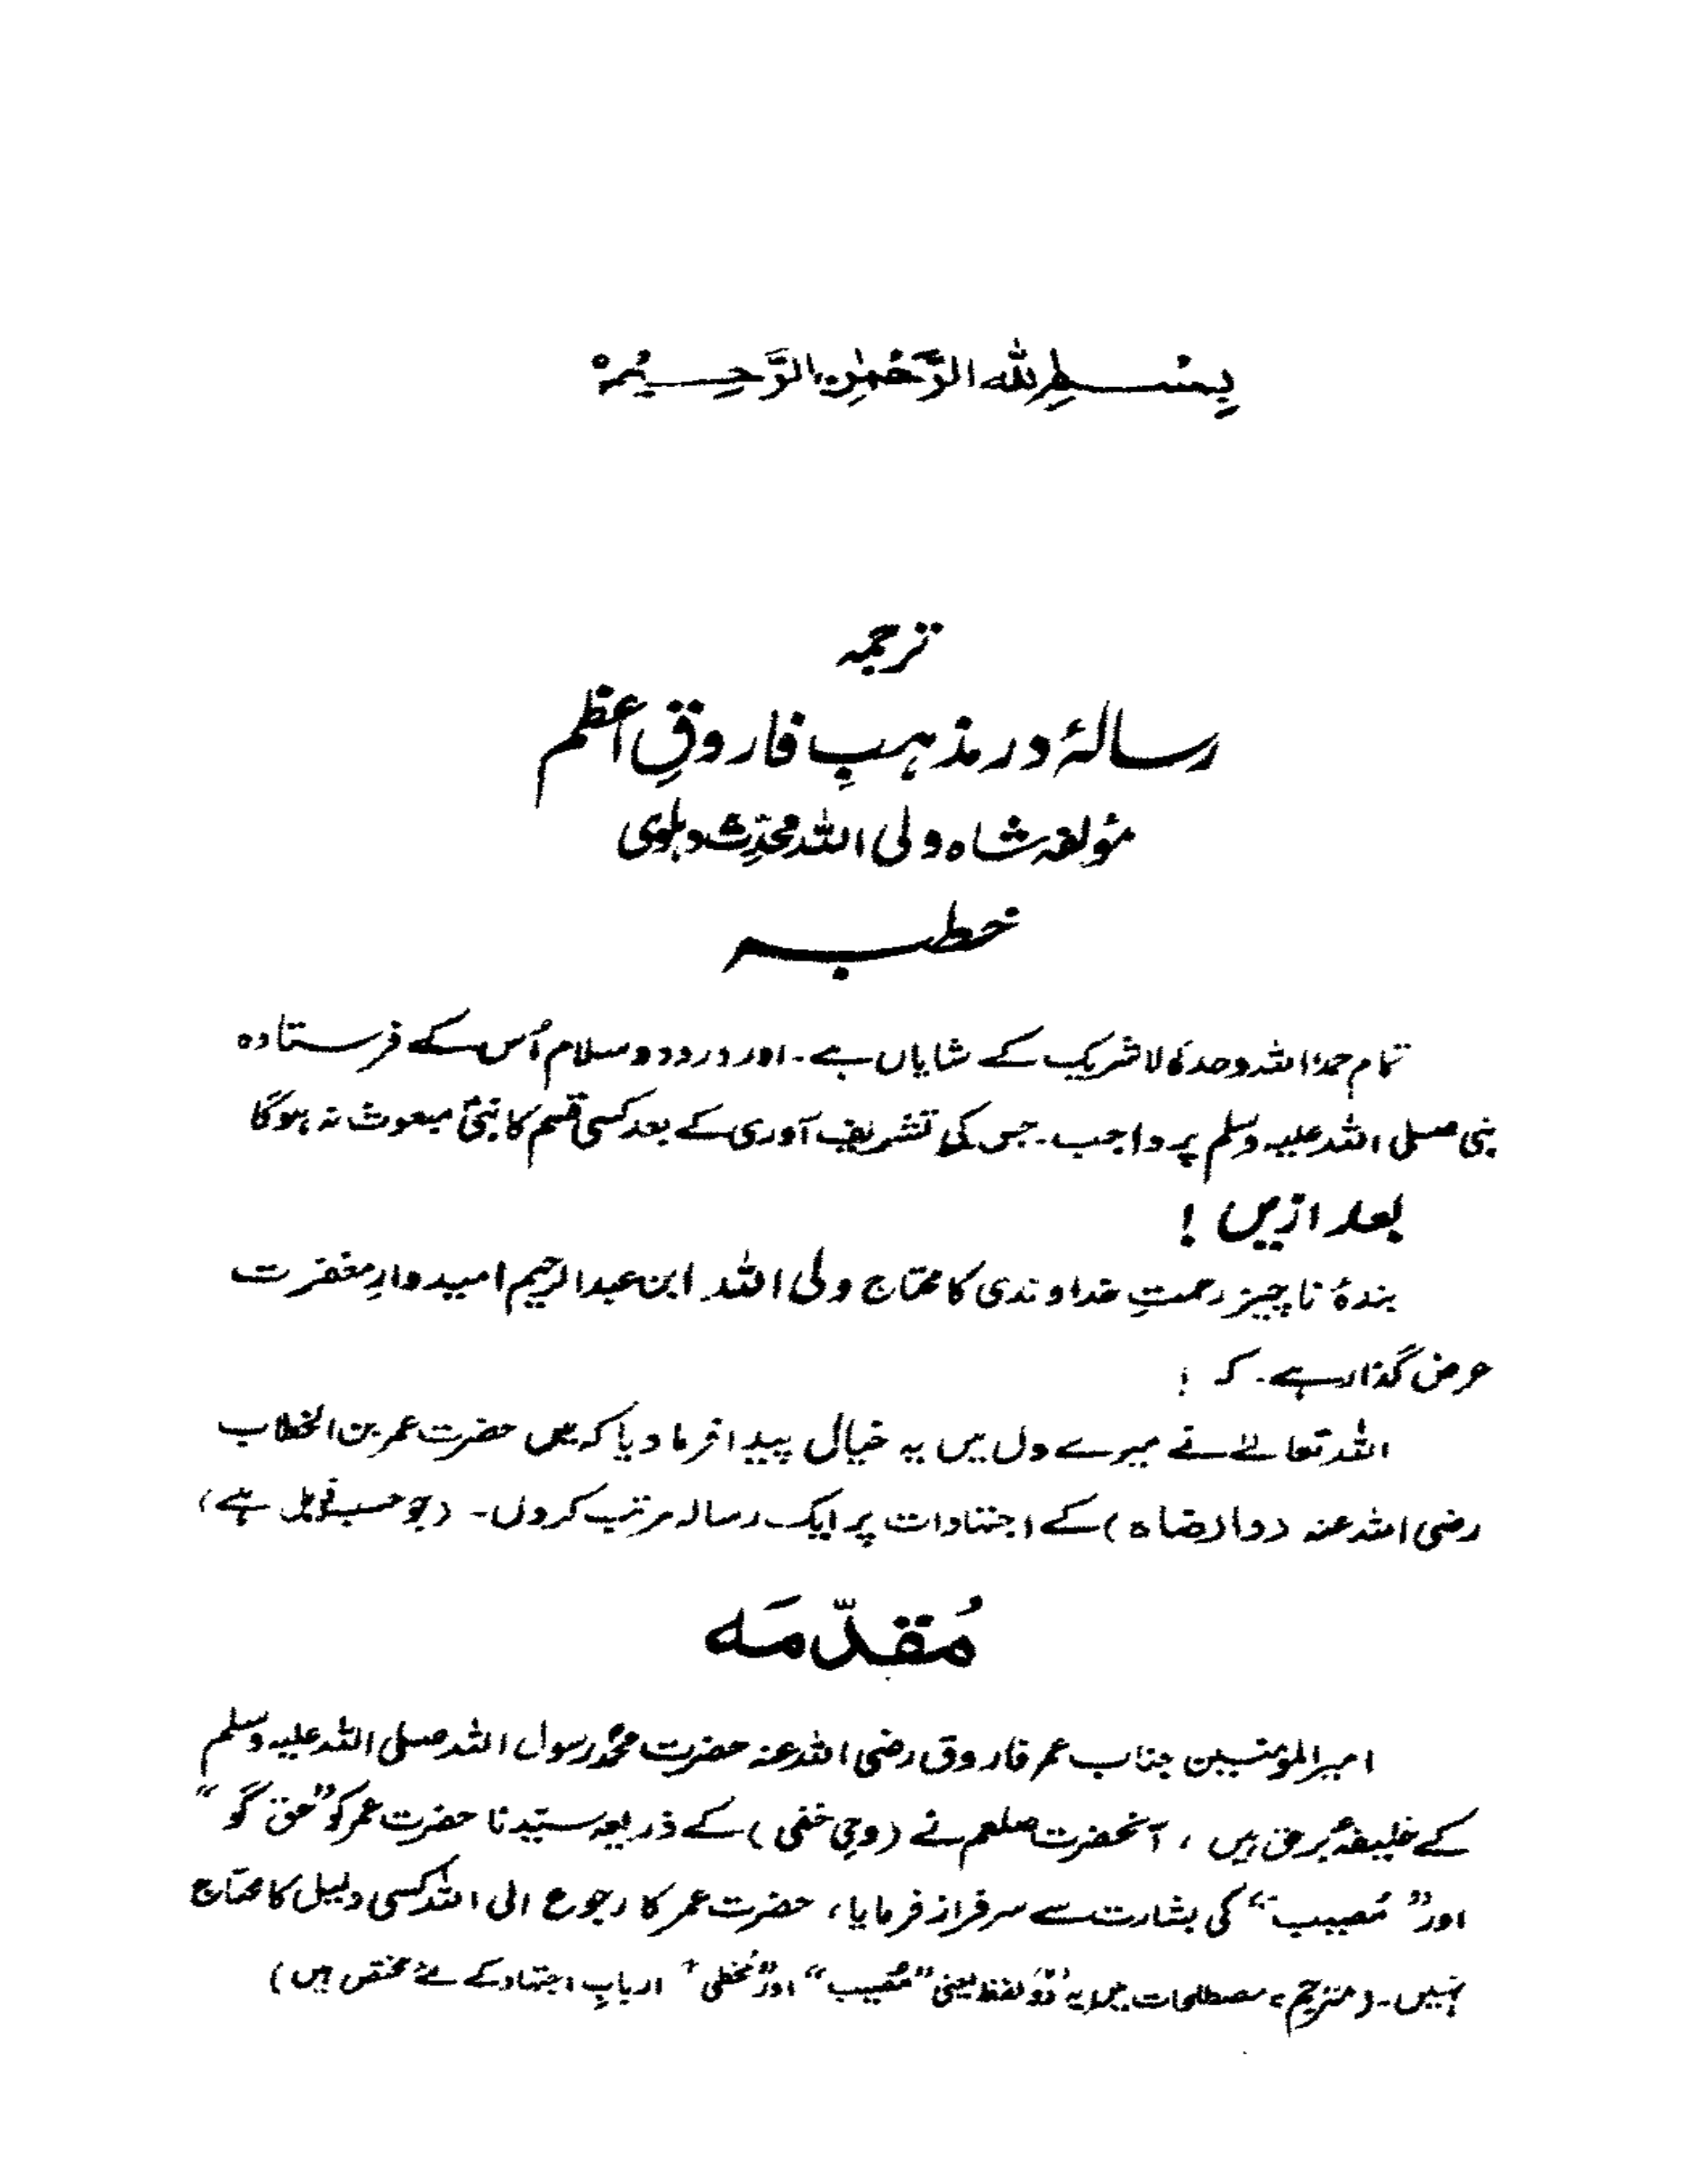 بِسْمِ اللهِ الرَّحْمٰنِ الرَّحِيْمِ
ترجمہ
رسالۂ در مذہبِ فاروقِ اعظم
مؤلفہ شاہ ولی اللہ محدّث دہلوی
خطبہ
تمام حمد اللہ وحدہٗ لا شریک کے شایاں ہے۔ اور درود و سلام اُس کے فرستادہ
نبی صلی اللہ علیہ وسلم پر واجب۔ جس کی تشریف آوری کے بعد کسی قسم کا نبیؐ مبعوث نہ ہوگا
بعد ازیں !
بندۂ ناچیز رحمتِ خداوندی کا محتاج ولی اللہ ابن عبدالرحیم امیدوارِ مغفرت
عرض گذار ہے۔ کہ !
اللہ تعالےٰ نے میرے دل میں یہ خیال پیدا فرما دیا کہ میں حضرت عمر بن الخطاب
رضی اللہ عنہ (وارضاہ) کے اجتہادات پر ایک رسالہ مرتب کردوں۔ (جو حسب ذیل ہے)
مُقدّمَہ
امیرالمؤمنین جناب عمر فاروق رضی اللہ عنہ حضرت محمدؐ رسول اللہ صلی اللہ علیہ وسلم
کے خلیفۂ برحق ہیں ، آنحضرت صلعم نے (وحی خفی) کے ذریعہ سیّدنا حضرت عمر کو ”حق گو“
اور ”مُصیب“ کی بشارت سے سرفراز فرمایا، حضرت عمر کا رجوع الی اللہ کسی دلیل کا محتاج
نہیں۔ (مترجم، مصطلحات میں یہ دو لفظ یعنی ”مُصیب“ اور ”مُخطی“ اربابِ اجتہاد کے لئے مختص ہیں)